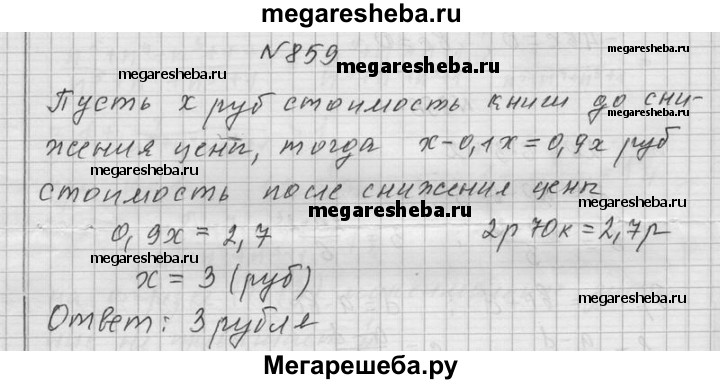 megaresheba.ru
N859
megaresheba.ru megaresheba.ru
Пусть х руб стоимость книги до сни-
жения цены, тогда х-0,1х=0,9х руб
megaresheba.ru megaresheba.ru
стоимость после снижения цены
megaresheba.ru
0,9х = 2,7 2р 70к = 2,7р
megaresheba.ru
х = 3 (руб)
megaresheba.ru
Ответ: 3 рубля
megaresheba.ru
Мегарешеба.ру